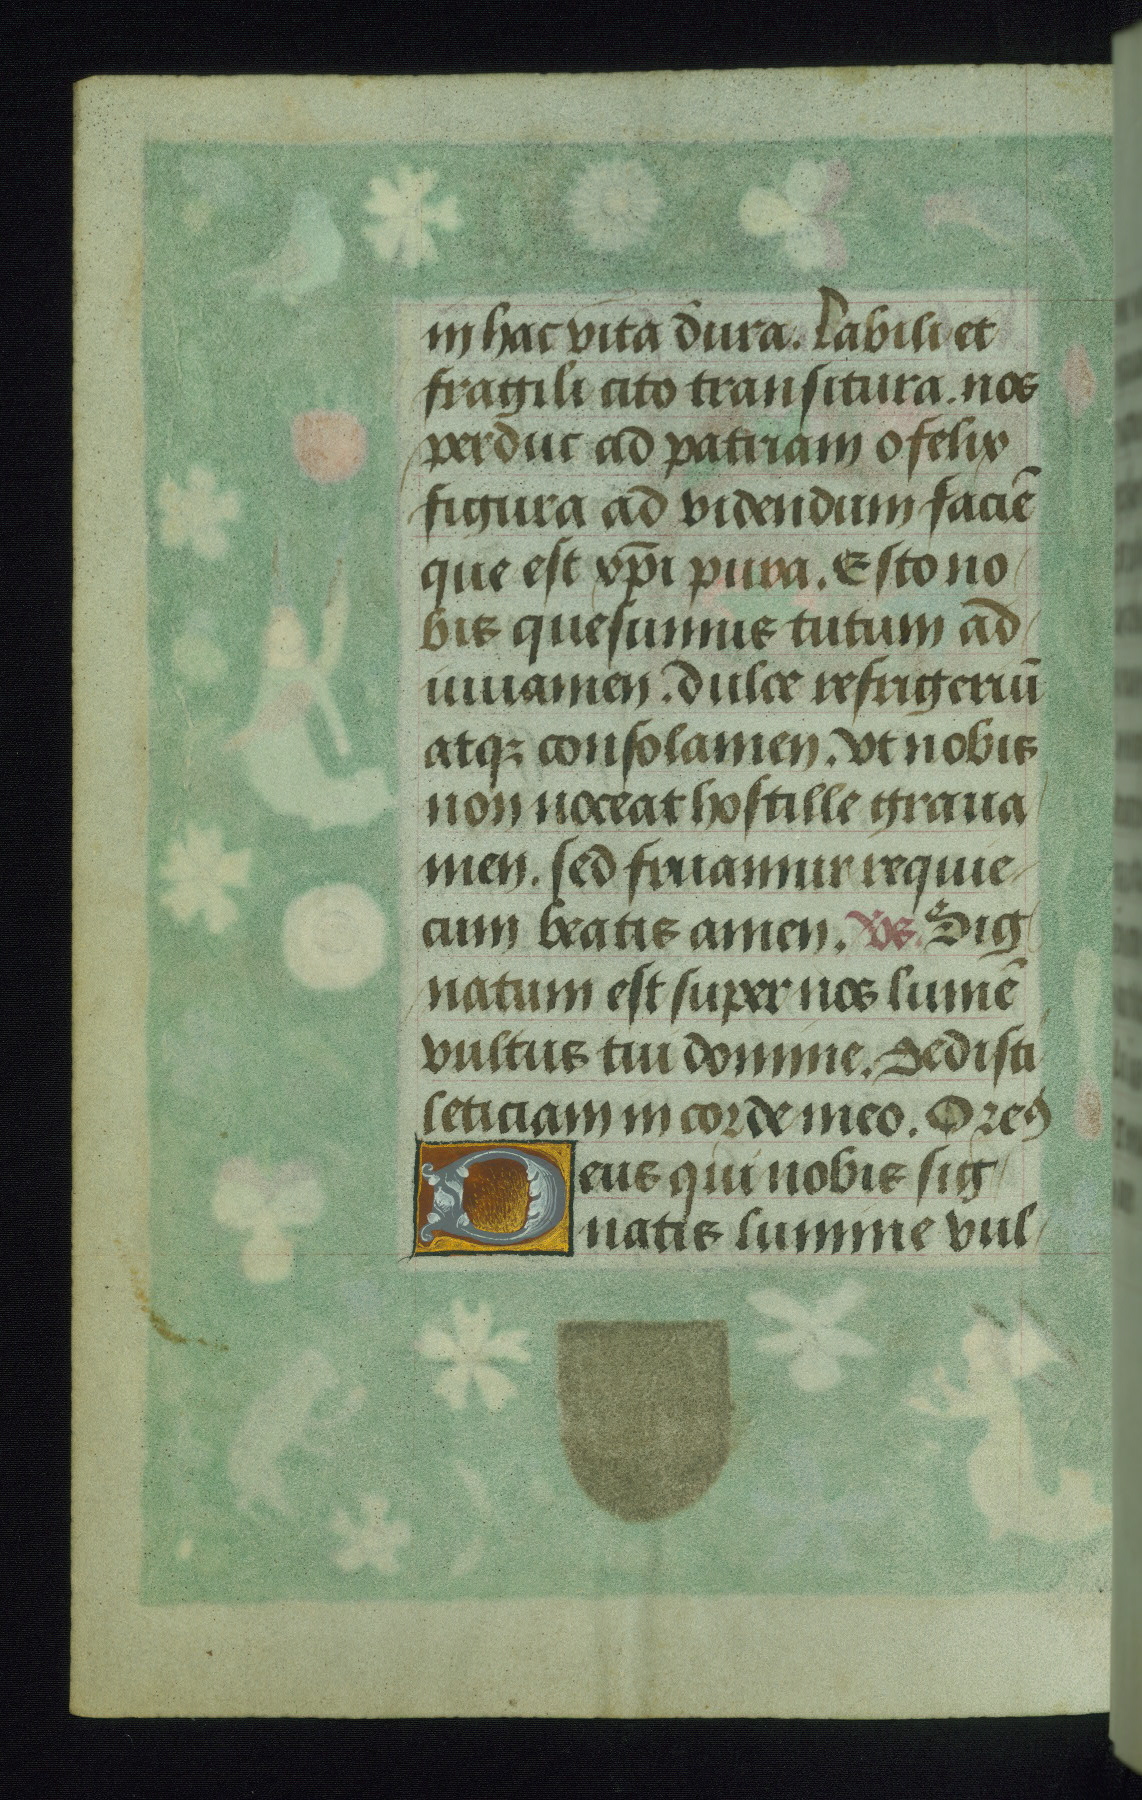 in hac vita dura. Labili et
fragili cito transitura. nos
perduc ad patriam o felix
figura ad videndum faciē
que est xp̄i pura. Esto no
bis quesumus tutum ad
iuuamen. dulce refrigeriū
atqꝫ consolamen. vt nobis
non noceat hostille graua
men. sed fruamur requie
cum beatis amen. v̄s. Sig
natum est super nos lumē
vultus tui domine. Dedisti
leticiam in corde meo. Oreꝰ
Deus qui nobis sig
natis lumine vul